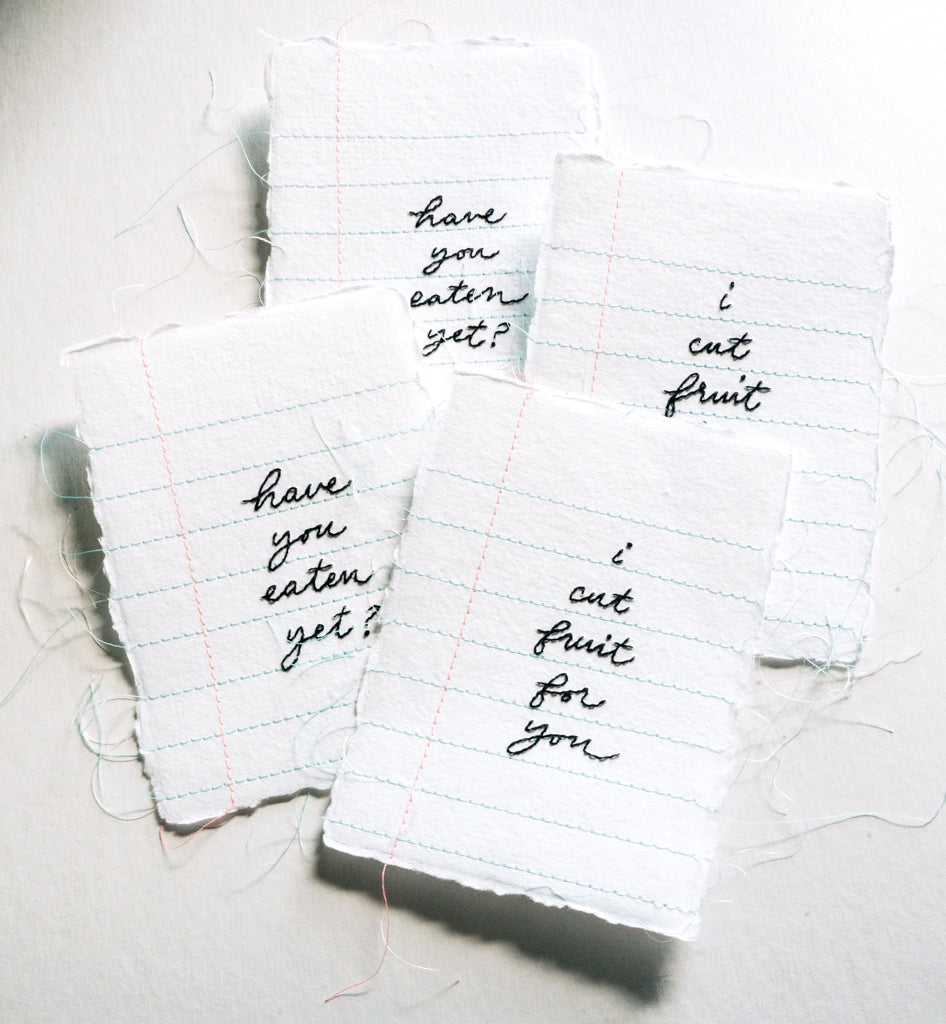 have
you
eaten
yet?
i
cut
fruit
have
you
eaten
yet?
i
cut
fruit
for
you